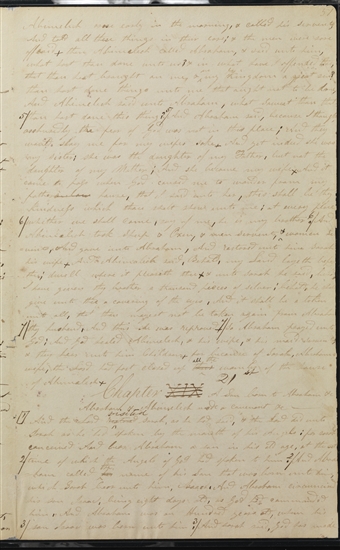 Abimelech rose early in the morning, & called his servants
told all these things in their ears; & the men were sore
afraid & then Abimelech called Abraham, & said unto him,
what hast thou done unto us? & in what have I offended thee,
that thou hast brought on me, & my Kingdom a great sin?
thou hast done things unto me that ought not to be done
And Abimelech said unto Abraham, what sawest thou that
5/ thou hast done this thing? & Abraham said, because I thought
the fear of God was not in this place; and they
would slay me for my wifes sake & And yet indeed she was
my sister; she was the daughter of my Father, but not the
daughter of my Mother; And she became my wife & And it
came to pass when God caused me to wander from my
fathers house, that I said unto her, this shall be thy
kindness which thou shalt shew unto me; at every place
6/ whither we shall come, say of me, he is my brother. & And
Abimelech took Sheep & Oxen, & men servants, & women servants
& gave unto Abraham, And restored unto him Sarah
his wife & And Abimelech said, Behold, my land lieth before
thee, dwell where it pleaseth thee & & unto Sarah he said,
I have given thy brother a thousand pieces of silver; behold, he
give unto thee a covering of the eyes, And it shall be a token
unto all, that thou mayest not be taken again from Abraham
7/ thy husband, And thus she was reproved & So Abraham prayed unto
God; And God healed Abimelech, & his wife, & his maid servants
& they bare unto him children & for because of Sarah, Abrahams
wife, the Lord had fast closed up all the wombs of the house
of Abimelech &
Chapter 21st
of Son born to Abraham
Abraham & Abimelech make a covenant
1/ And the Lord visited Sarah, as he had said; & the Lord did unto
Sarah as he had spoken by the mouth of his angels; for Sarah
conceived And bare Abraham a son in his old age, at the set
2/ time of which the Angels of God had spoken to him & And Abra-
ham called the name of his son that was born unto him,
which Sarah bare unto him, Isaac, And Abraham circumcised
his son Isaac, being eight days old, as God had commanded
him, And Abraham was an hundred years old, when his
3/ son Isaac was born unto him & And Sarah said, God has made